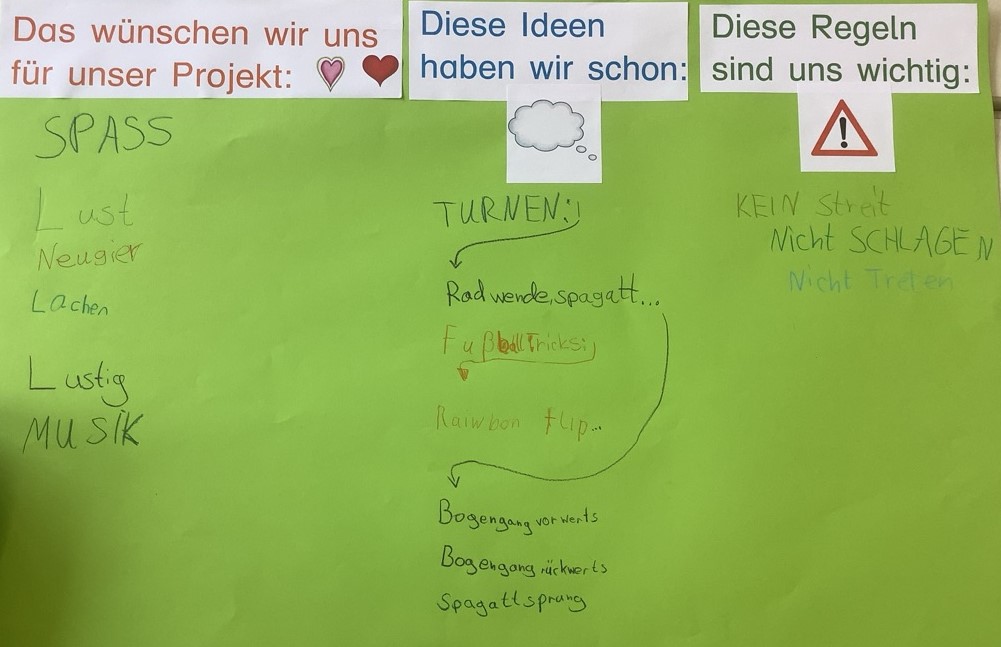 Das wünschen wir uns
für unser Projekt:
SPASS
Lust
Neugier
Lachen
Lustig
MUSIK
Diese Ideen
haben wir schon:
TURNEN:)
Radwende,spagatt...
FußballTricks:)
Raiwbon flip...
Bogengang vorwerts
Bogengang rückwerts
Spagattsprung
Diese Regeln
sind uns wichtig:
!
KEIN Streit
Nicht SCHLAGEN
Nicht Treten